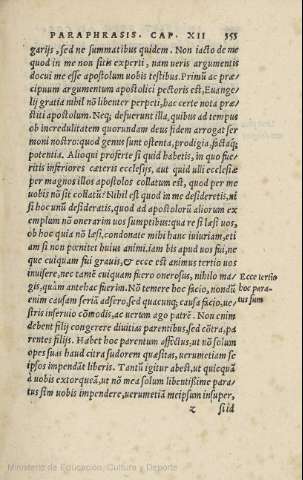 PARAPHRASIS. CAP. XII 355
garijs, sed ne summatibus quidem. Non iacto de me
quod in me non sitis experti, nam ueris argumentis
docui me esse apostolum uobis testibus. Primũ ac præ
cipuum argumentum apostolici pectoris est, Euange-
lij gratia nihil nõ libenter perpeti, hac certe nota præ
stiti apostolum. Neq; defuerunt illa, quibus ad tempus
ob incredulitatem quorundam deus fidem arrogat ser
moni nostro: quod genus sunt ostenta, prodigia, festaq;
potentia. Alioqui proferte si quid habetis, in quo fue-
ritis inferiores cæteris ecclesijs, aut quid ulli ecclesiæ
per magnos illos apostolos collatum est, quod per me
uobis nõ sit collatũ? Nihil est quod in me desideretis, ni
si hoc unũ desideratis, quod ad apostolorũ aliorum ex
emplum nõ onerarim uos sumptibus: qua re si læsi uos,
ob hoc quia nõ læsi, condonate mihi hanc iniuriam, eti
am si non pœnitet huius animi. iam bis apud uos fui, ne
que cuiquam fui grauis, & ecce est animus tertio uos
inuisere, nec tamẽ cuiquam fuero onerosus, nihilo ma/
gis, quàm antehac fuerim. Nõ temere hoc facio, nondũ
enim causam feriã adfero, sed quacunq; causa facio, ue/
stris inseruio cõmodis, ac uerum ago patrẽ. Non enim
debent filij congerere diuitias parentibus, sed cõtra, pa
rentes filijs. Habet hoc parentum affectus, ut nõ solum
opes suas haud citra sudorem quæsitas, uerumetiam se
ipsos impendãt liberis. Tantũ igitur abest, ut quicquã
à uobis extorqueã, ut nõ mea solum libentissime para/
tus sim uobis impendere, uerumetiã meipsum insuper,
z si id
Ecce tertio
hoc para-
tus sum
Ministerio de Educación, Cultura y Deporte